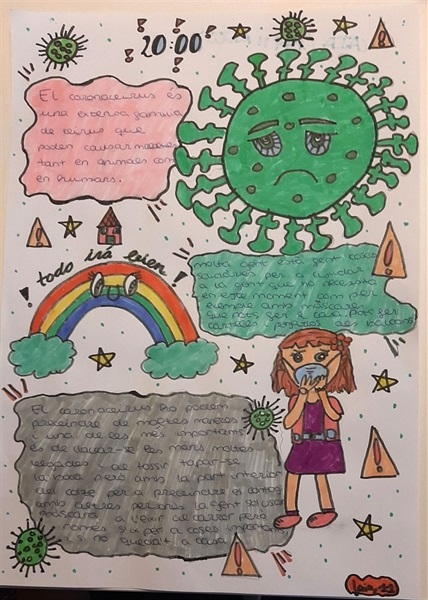 20:00
El coronavirus és
una extensa família
de virus que
poden causar malalties
tant en animales com
en humans.
todo irá bien
molta gent està fent coses
solidàries per a ajudar
a la gent que ho necessita
en este moment com per
exemple amb mascaretes
que pots fer a casa. Pots fer
cartells
El coronavirus ho podem
de moltes maneres
i una de les més importants
és de llavar-se les mans moltes
vegades al tossir tapar-se
la boca però amb la part interior
del colze per a el contacte
amb altres persones la gent sol usar
a l'eixir al carrer però
només per a coses importants
si no queda't a casa